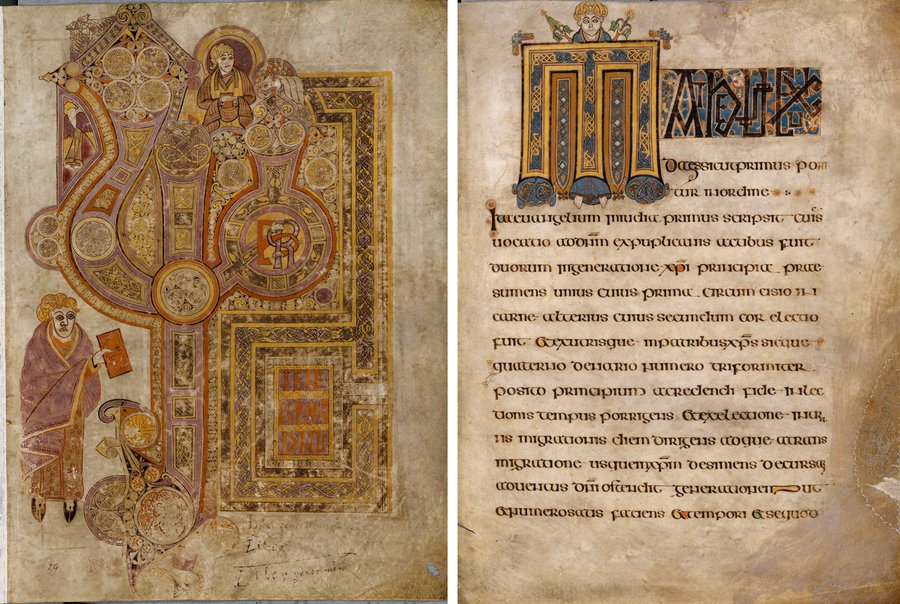 29
MATHEUS EX
iudaea sicut primus po
nitur in ordine
Ita euangelium in iudia primus scripsit cuius
uocatio ad dnm ex puplicanis actibus fuit
duorum in generatione xpi principia prae
sumens unius cuius prima circum cisio in
carne alterius cuius secundum cor electio
fuit et ex utrisque in patribus xps sicque
quaterno denario numero triformiter
posito principium a credendi fide in elec
tionis tempus porrigens et ex electione in
is migrationis diem dirigens adque a trans
migratione usque in xpm desiniens decursa
aduentus dni ostendit generationem ut
et numero satis faciens et tempori et se quod